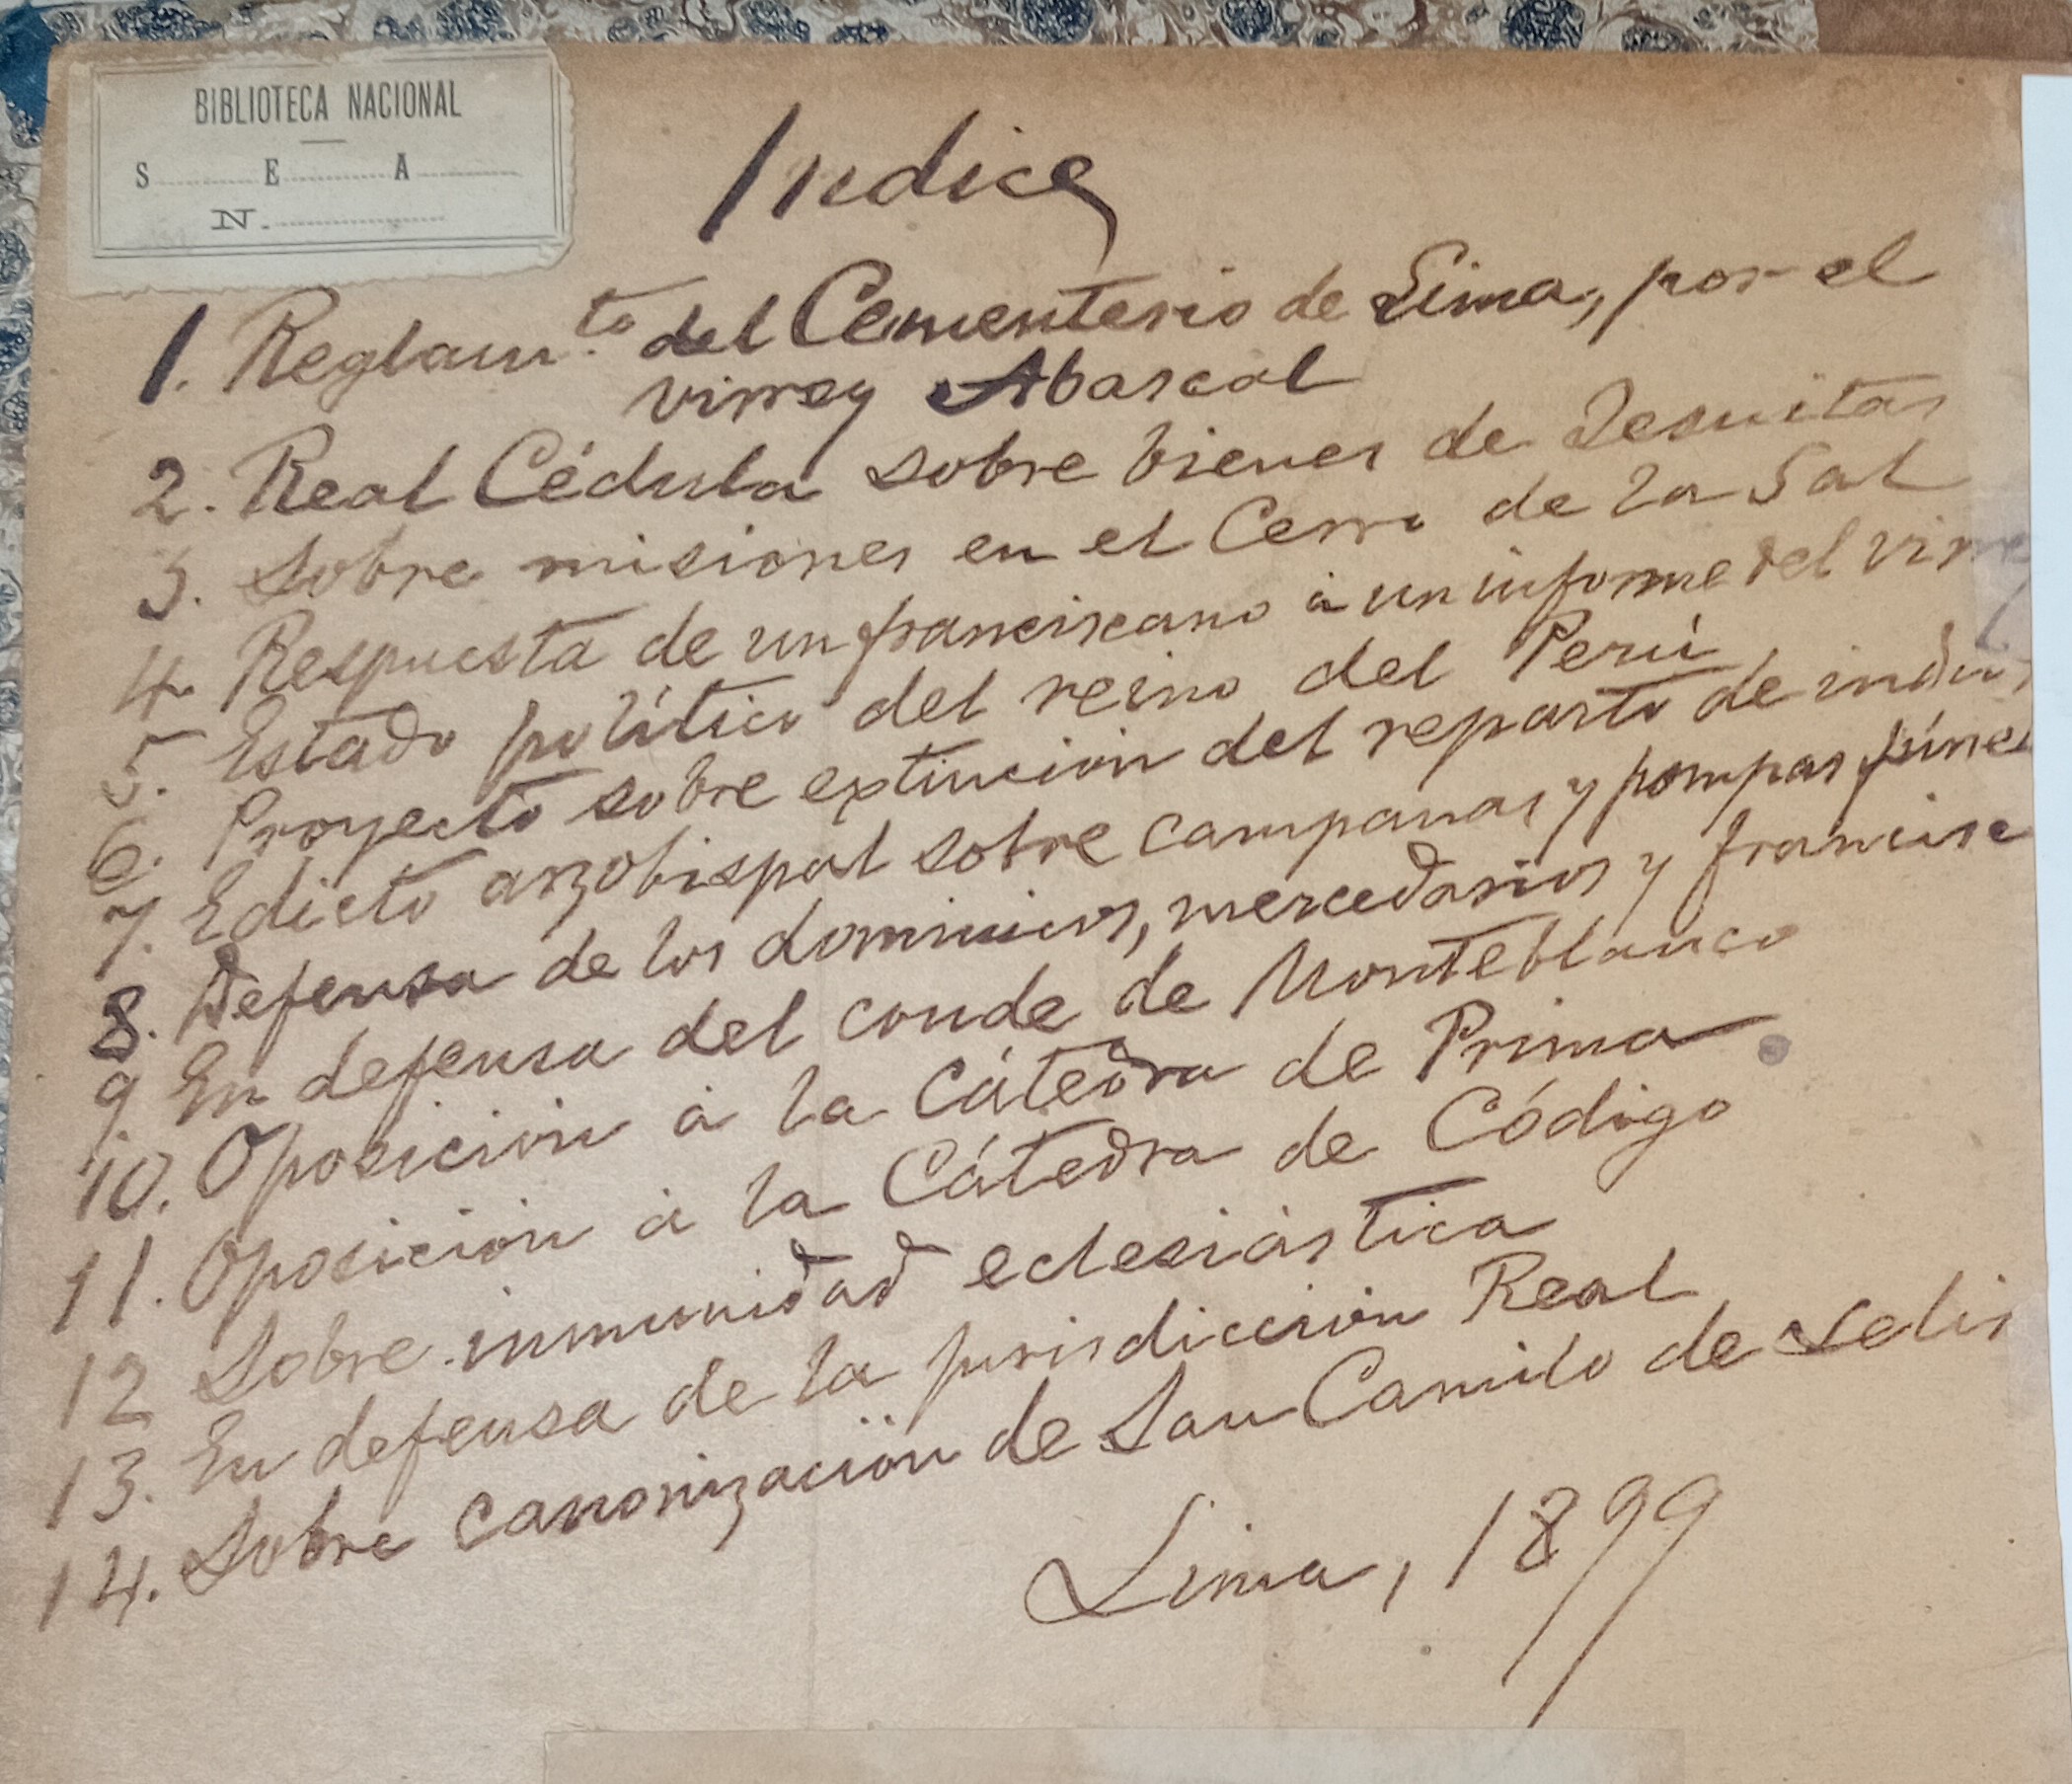 BIBLIOTECA NACIONAL
S E A
N.
Indice
1. Reglam.to del Cementerio de Lima, por el
virrey Abascal
2. Real Cédula sobre bienes de Jesuitas
3. Sobre misiones en el Cerro de la Sal
4. Respuesta de un franciscano á un informe del virrey
5. Estado político del reino del Perú
6. Proyecto sobre extincion del reparto de indios
7. Edicto arzobispal sobre campanas y pompas fúne
8. Defensa de los dominicos, mercedarios y francisc
9 En defensa del conde de Monteblanco
10. Oposición á la Cátedra de Prima
11. Oposición á la Cátedra de Código
12 Sobre inmunidad eclesiástica
13. En defensa de la jurisdiccion Real
14. Sobre canonización de San Camilo de Lelis
Lima, 1899